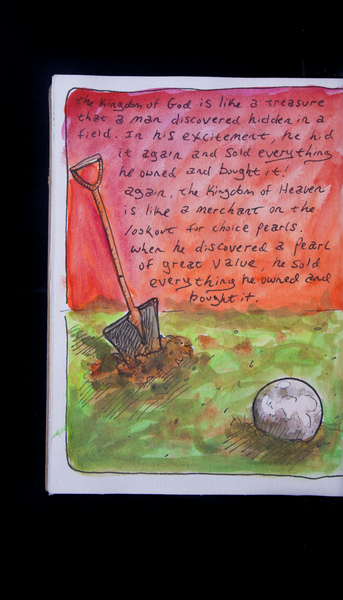 the Kingdom of God is like a treasure
that a man discovered hidden in a
field. In his excitement, he hid
it again and sold everything
he owned and bought it!
again, the Kingdom of Heaven
is like a merchant on the
lookout for choice pearls.
when he discovered a pearl
of great value, he sold
everything he owned and
bought it.